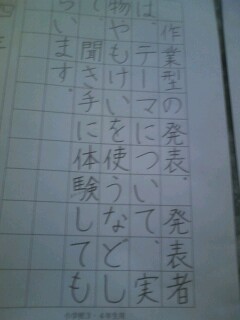 作業型の発表。発表者
は、テーマについて、実
物やもけいを使うなどし
て、聞き手に体験しても
らいます。